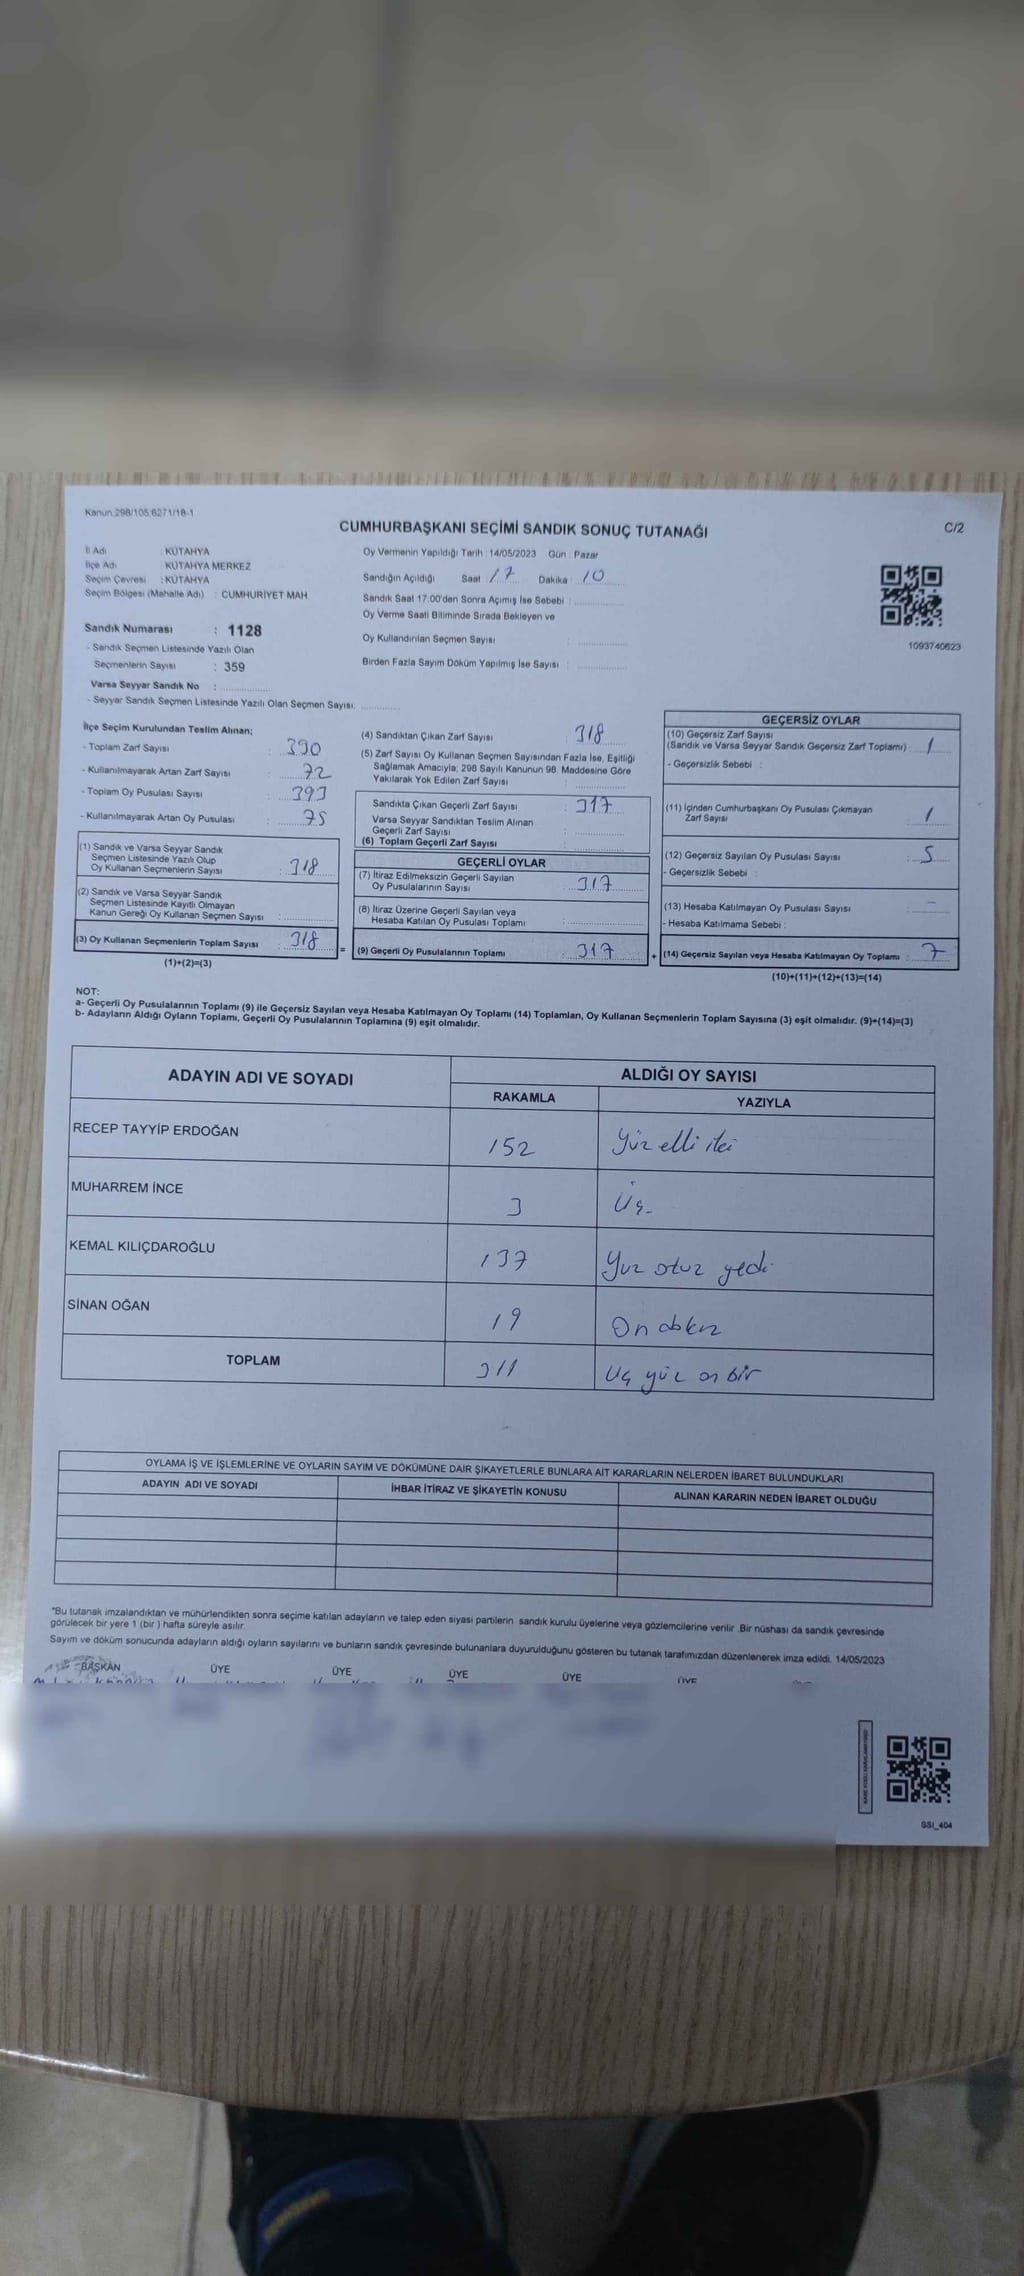 Kanun.298/105,6271/18-1
CUMHURBAŞKANI SEÇİMİ SANDIK SONUÇ TUTANAĞI
C/2
İl Adı : KÜTAHYA
İlçe Adı : KÜTAHYA MERKEZ
Seçim Çevresi : KÜTAHYA
Seçim Bölgesi (Mahalle Adı) : CUMHURİYET MAH.
Sandık Numarası : 1128
- Sandık Seçmen Listesinde Yazılı Olan
Seçmenlerin Sayısı : 359
Varsa Seyyar Sandık No :
- Seyyar Sandık Seçmen Listesinde Yazılı Olan Seçmen Sayısı:
Oy Vermenin Yapıldığı Tarih : 14/05/2023 Gün : Pazar
Sandığın Açıldığı Saat 17 Dakika : 10
Sandık Saat 17:00'den Sonra Açımış İse Sebebi :
Oy Verme Saati Bitiminde Sırada Bekleyen ve
Oy Kullandırılan Seçmen Sayısı :
Birden Fazla Sayım Döküm Yapılmış İse Sayısı :
1093740623
İlçe Seçim Kurulundan Teslim Alınan;
- Toplam Zarf Sayısı : 390
- Kullanılmayarak Artan Zarf Sayısı : 72
- Toplam Oy Pusulası Sayısı : 393
- Kullanılmayarak Artan Oy Pusulası : 75
(1) Sandık ve Varsa Seyyar Sandık
Seçmen Listesinde Yazılı Olup
Oy Kullanan Seçmenlerin Sayısı : 318
(2) Sandık ve Varsa Seyyar Sandık
Seçmen Listesinde Kayıtlı Olmayan
Kanun Gereği Oy Kullanan Seçmen Sayısı :
(3) Oy Kullanan Seçmenlerin Toplam Sayısı : 318
(1)+(2)=(3)
(4) Sandıktan Çıkan Zarf Sayısı : 318
(5) Zarf Sayısı Oy Kullanan Seçmen Sayısından Fazla İse, Eşitliği
Sağlamak Amacıyla; 298 Sayılı Kanunun 98. Maddesine Göre
Yakılarak Yok Edilen Zarf Sayısı :
Sandıkta Çıkan Geçerli Zarf Sayısı : 317
Varsa Seyyar Sandıktan Teslim Alınan
Geçerli Zarf Sayısı :
(6) Toplam Geçerli Zarf Sayısı :
GEÇERLİ OYLAR
(7) İtiraz Edilmeksizin Geçerli Sayılan
Oy Pusulalarının Sayısı : 317
(8) İtiraz Üzerine Geçerli Sayılan veya
Hesaba Katılan Oy Pusulası Toplamı :
= (9) Geçerli Oy Pusulalarının Toplamı : 317
GEÇERSİZ OYLAR
(10) Geçersiz Zarf Sayısı
(Sandık ve Varsa Seyyar Sandık Geçersiz Zarf Toplamı) : 1
- Geçersizlik Sebebi :
(11) İçinden Cumhurbaşkanı Oy Pusulası Çıkmayan
Zarf Sayısı : 1
(12) Geçersiz Sayılan Oy Pusulası Sayısı : 5
- Geçersizlik Sebebi :
(13) Hesaba Katılmayan Oy Pusulası Sayısı : -
- Hesaba Katılmama Sebebi :
+ (14) Geçersiz Sayılan veya Hesaba Katılmayan Oy Toplamı : 7
(10)+(11)+(12)+(13)=(14)
NOT:
a- Geçerli Oy Pusulalarının Toplamı (9) ile Geçersiz Sayılan veya Hesaba Katılmayan Oy Toplamı (14) Toplamları, Oy Kullanan Seçmenlerin Toplam Sayısına (3) eşit olmalıdır. (9)+(14)=(3)
b- Adayların Aldığı Oyların Toplamı, Geçerli Oy Pusulalarının Toplamına (9) eşit olmalıdır.
ADAYIN ADI VE SOYADI
ALDIĞI OY SAYISI
RAKAMLA YAZIYLA
RECEP TAYYİP ERDOĞAN 152 Yüz elli iki
MUHARREM İNCE 3 Üç
KEMAL KILIÇDAROĞLU 137 Yuz otuz yedi
SİNAN OĞAN 19 On dokuz
TOPLAM 311 Uç yüz on bir
OYLAMA İŞ VE İŞLEMLERİNE VE OYLARIN SAYIM VE DÖKÜMÜNE DAİR ŞİKAYETLERLE BUNLARA AİT KARARLARIN NELERDEN İBARET BULUNDUKLARI
ADAYIN ADI VE SOYADI İHBAR İTİRAZ VE ŞİKAYETİN KONUSU ALINAN KARARIN NEDEN İBARET OLDUĞU
"Bu tutanak imzalandıktan ve mühürlendikten sonra seçime katılan adayların ve talep eden siyasi partilerin sandık kurulu üyelerine veya gözlemcilerine verilir .Bir nüshası da sandık çevresinde
görülecek bir yere 1 (bir ) hafta süreyle asılır.
Sayım ve döküm sonucunda adayların aldığı oyların sayılarını ve bunların sandık çevresinde bulunanlara duyurulduğunu gösteren bu tutanak tarafımızdan düzenlenerek imza edildi. 14/05/2023
BAŞKAN ÜYE ÜYE ÜYE ÜYE ÜYE
SSI_404